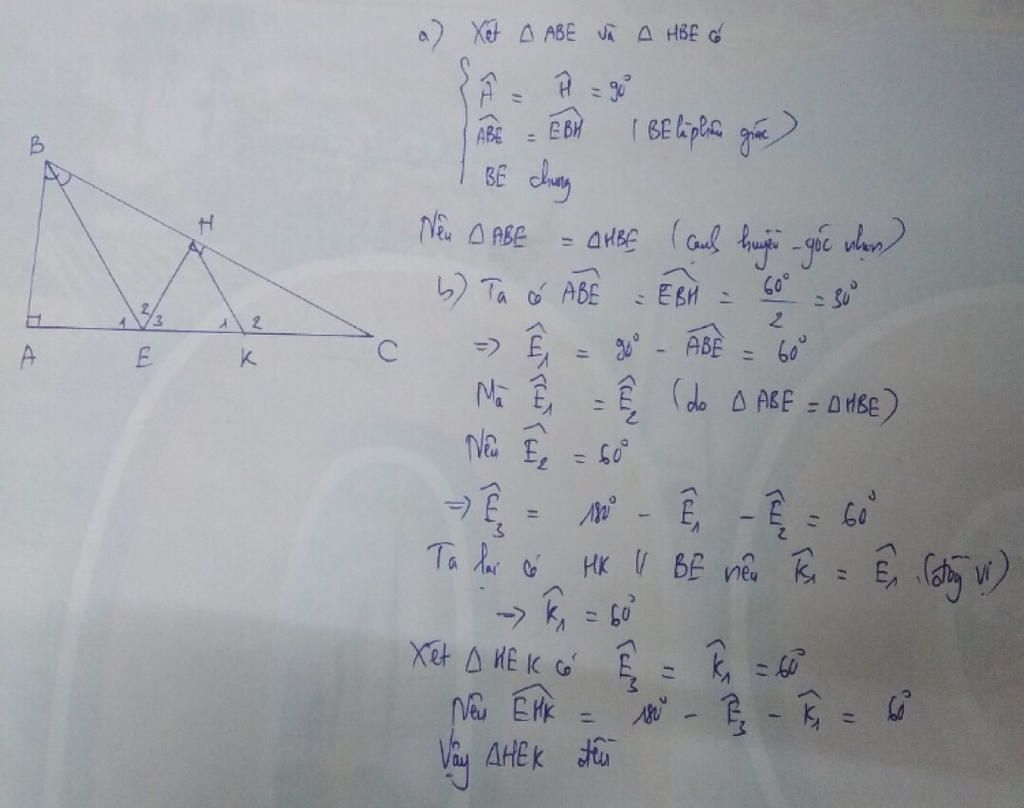 a) Xét Δ ABE và Δ HBE có
Â = Ĥ = 90°
ABE^ = EBH^ (BE là phân giác)
BE chung
Nên Δ ABE = Δ HBE (cạnh huyền - góc nhọn)
b) Ta có ABE^ = EBH^ = 60°/2 = 30°
=> Ê₁ = 90° - ABE^ = 60°
Mà Ê₁ = Ê₂ (do Δ ABE = Δ HBE)
Nên Ê₂ = 60°
=> Ê₃ = 180° - Ê₁ - Ê₂ = 60°
Ta lại có HK // BE nên K̂₁ = Ê₁ (đồng vị)
→ K̂₁ = 60°
Xét Δ HEK có Ê₃ = K̂₁ = 60°
Nên EHK^ = 180° - Ê₃ - K̂₁ = 60°
Vậy ΔHEK đều
B
H
2
1 3 1 2
A E K C